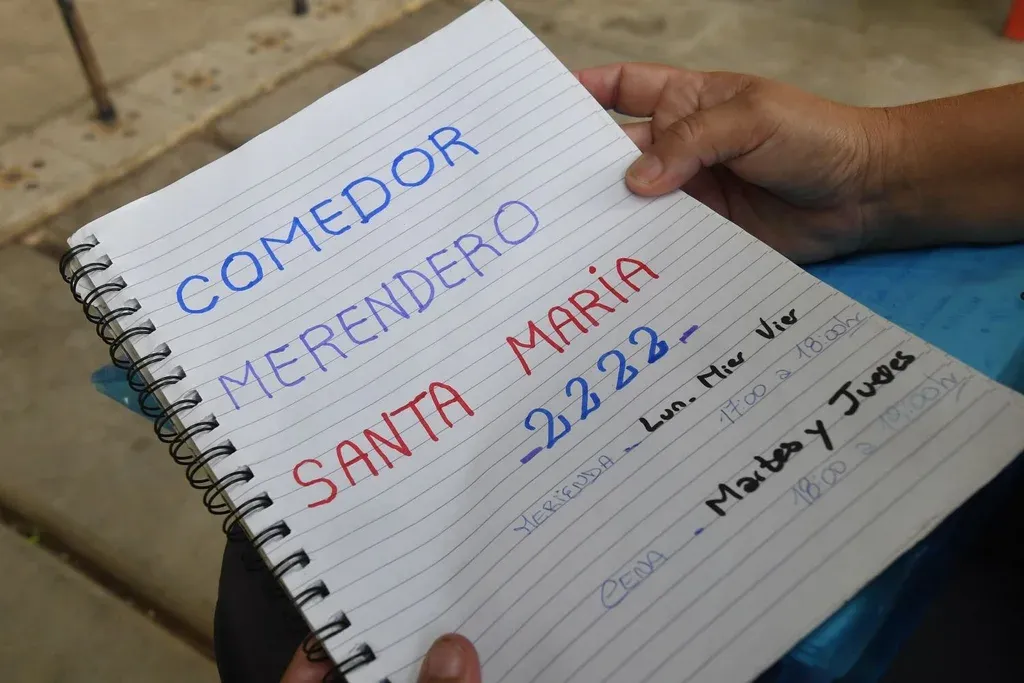 COMEDOR
MERENDERO
SANTA MARIA
-2222-
MERIENDA - Lun. Mier Vier
17:00 a 18:00hr
CENA - Martes y Jueves
18:00 a 19:00hr